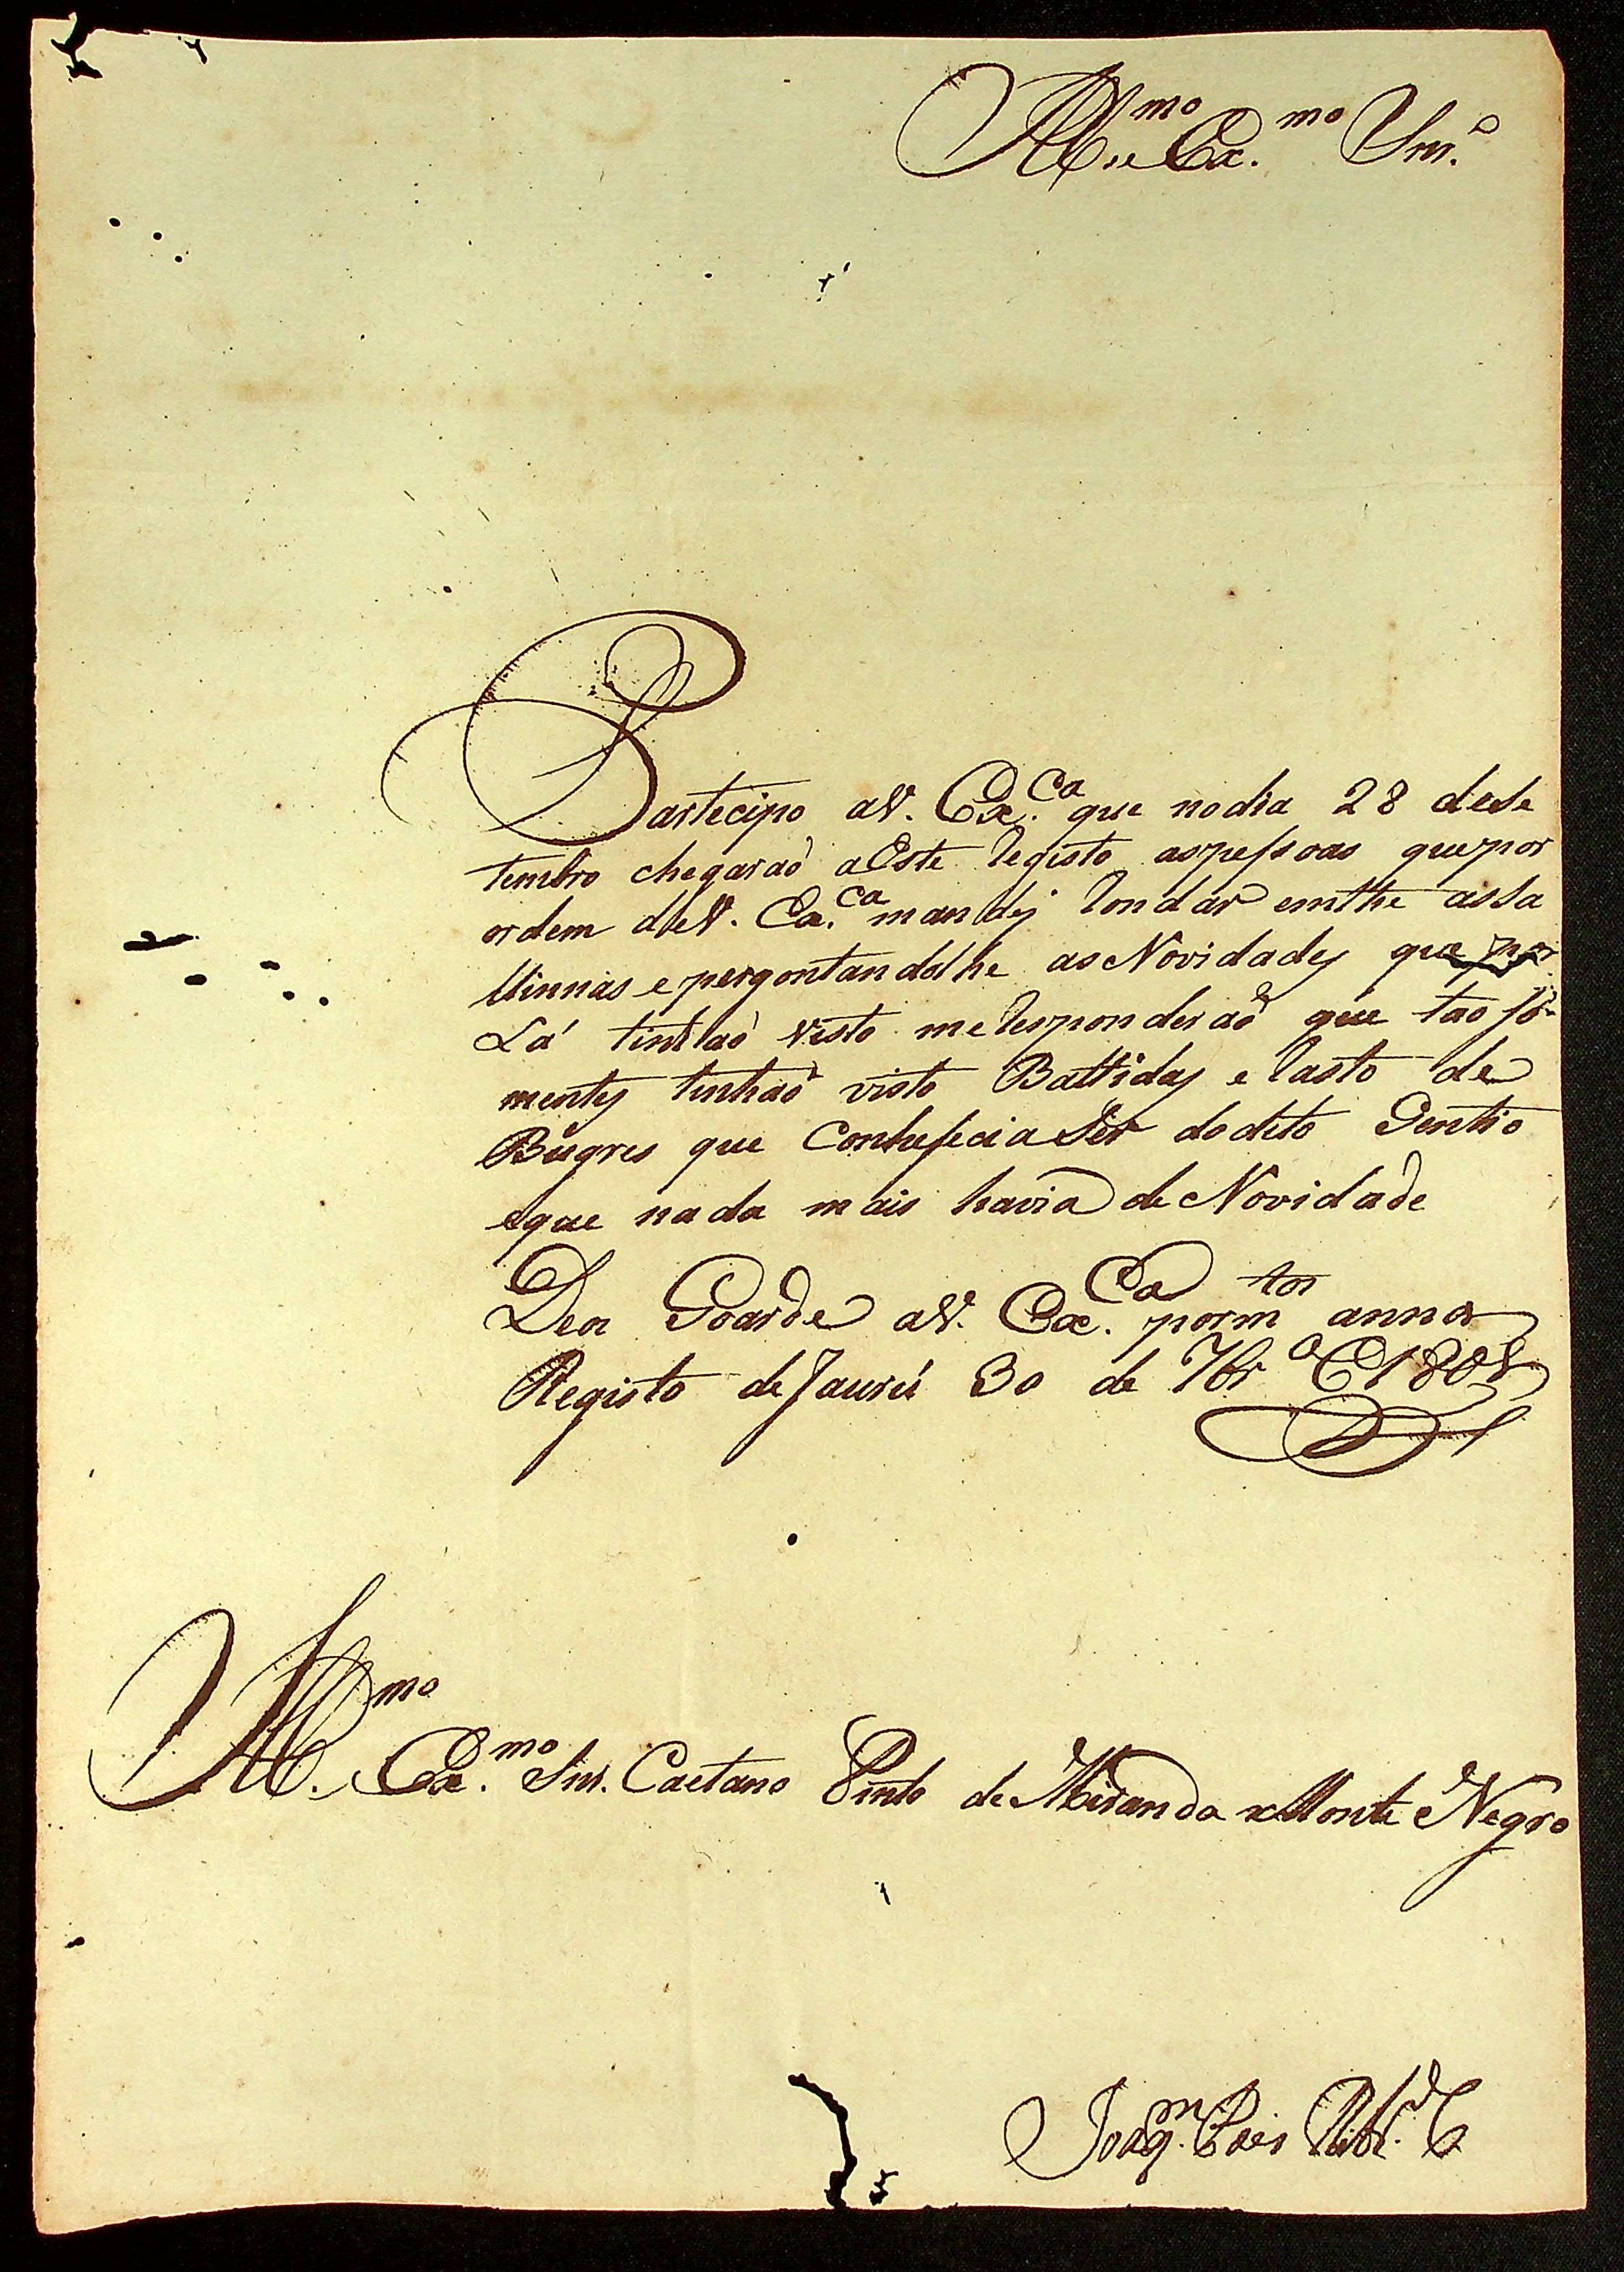 Ill.mo e Ex.mo Snr.
Partecipo aV. Ex.ca que nodia 28 deSe
tembro chegaraõ aEste Registo aspessoas quepor
ordem deV. Ex.ca mandej Rondar emthe asSa
llinnas e pergontandolhe as Novidades que por
Lá tinhaõ visto me Responderaõ que taõ só
mentes tinhaõ visto Battidas e Rasto de
Bugres que Conhesecia Ser dodito Gentio
eque nada mais havia de Novidade
Deos Goarde aV. Ex.ca porm.tos annos
Registo de Jaurú 30 de 7br.o
Ill.mo Ex.mo Snr. Caetano Pinto de Miranda Monte Negro
Joaq.m